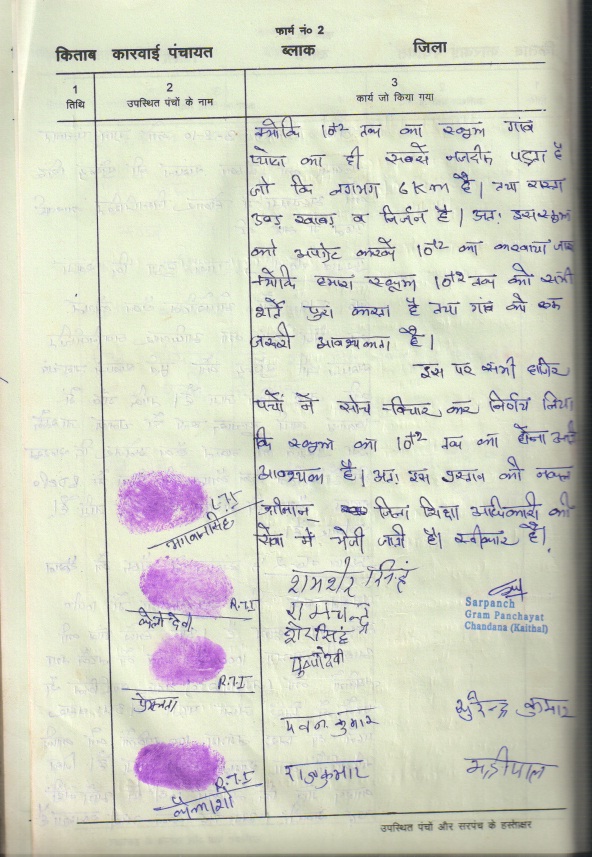 फार्म नं० 2
किताब कारवाई पंचायत ब्लाक जिला
1 2 3
तिथि उपस्थित पंचों के नाम कार्य जो किया गया
क्योकि 10+2 तक का स्कूल गांव
का ही सबसे नजदीक पड़ता है
जो कि लगभग 6 Km है। तथा रास्ता
उबड़ खाबड़ व निर्जन है। अतः इस स्कूल
को अपग्रेट करके 10+2 का करवाया जाए
क्योकि हमारा स्कूल 10+2 तक की सभी
शर्ते पुरा करता है तथा गांव की एक
जरूरी आवश्यकता है।
इस पर सभी हाजिर
पंचों ने सोच विचार कर निर्णय लिया
कि स्कूल का 10+2 तक का होना अति
आवश्यक है। अतः इस प्रस्ताव की नकल
श्रीमान जिला शिक्षा अधिकारी की
सेवा में भेजी जाती है। स्वीकार है।
L.T.I
भगवानसिंह
शमशेर सिंह
R.T.I
रामचन्द्र
Sarpanch
Gram Panchayat
Chandana (Kaithal)
देवी
शेरसिंह
R.T.I
पुष्पादेवी
प्रेमलता
पवन कुमार सुरेन्द्र कुमार
R.T.I
राजकुमार महीपाल
कैलाशो
उपस्थित पंचों और सरपंच के हस्ताक्षर